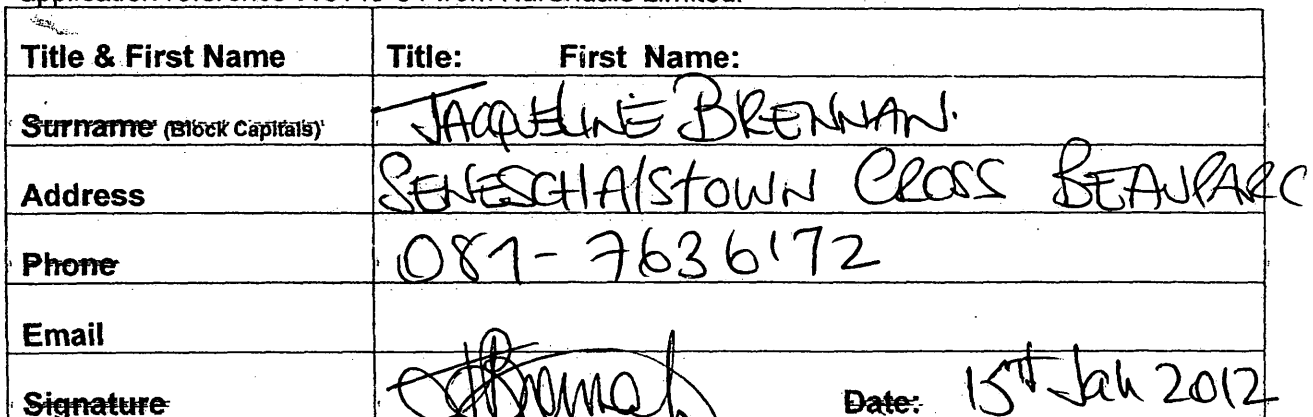 Title & First Name Title: First Name:
Surname (Block Capitals) JACQUELINE BRENNAN.
Address SENESCHAlStOWN CROSS BEAUPARC
Phone 087-7636172
Email
Signature Date: 15th Jan 2012